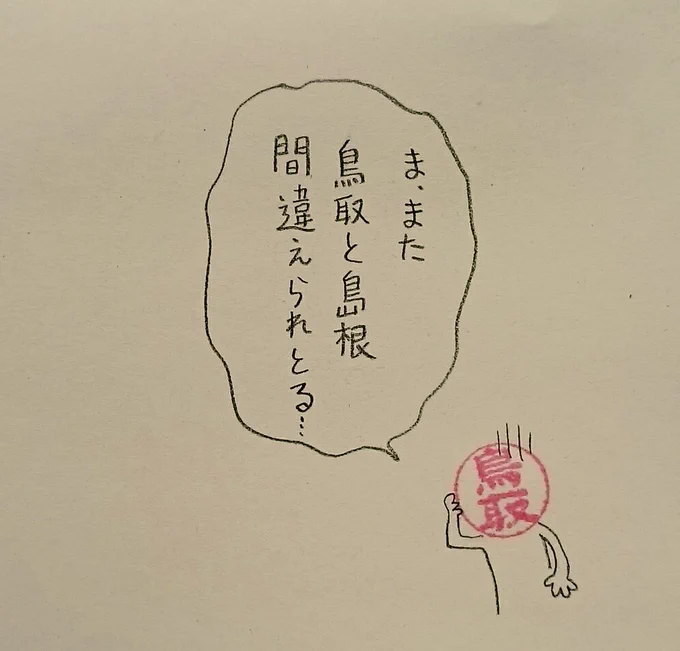 ま、また
鳥取と島根
間違えられとる…
鳥取